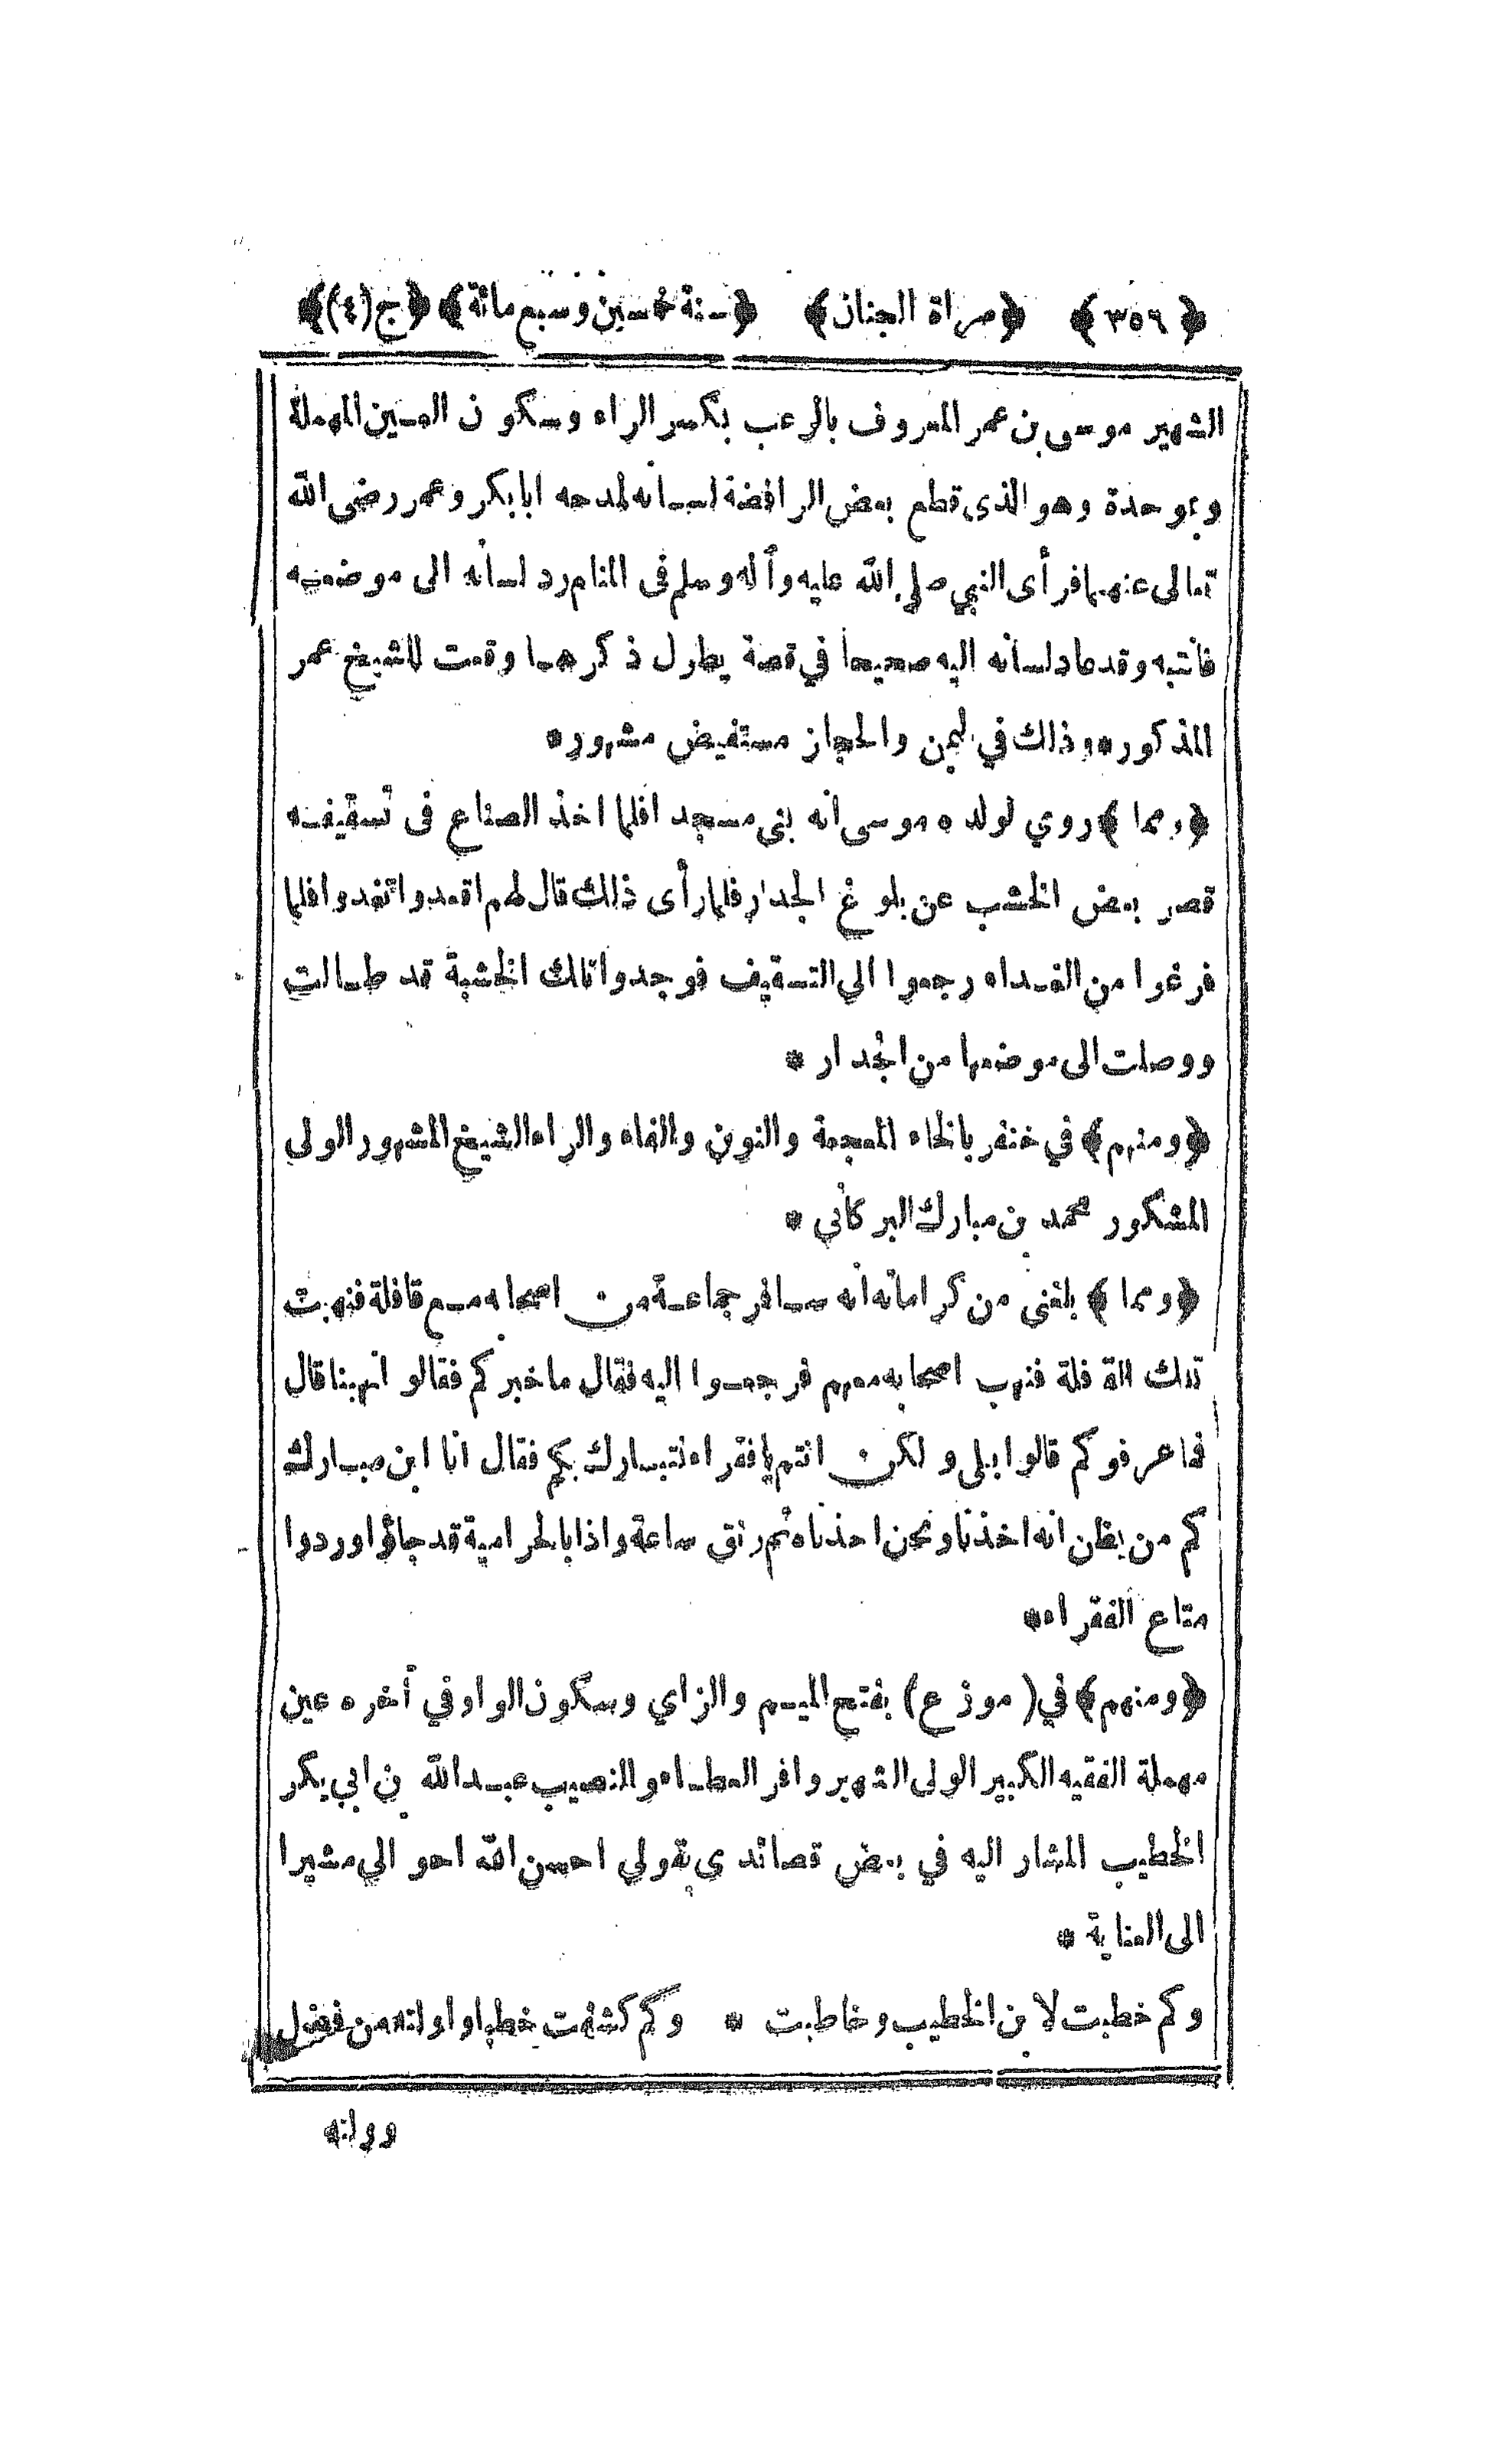 ﴿٣٥٦﴾ ﴿مراة الجنان﴾ ﴿سنة خمسين وسبع مائة﴾ ﴿ج(٤)﴾
الشهير موسى بن عمر المعروف بالرعب بكسر الراء وسكون العين المهملة
وبوحدة وهو الذى قطع بعض الرافضة لسانه لمدحه ابا بكر وعمر رضى الله
تعالى عنهما فرأى النبي صلى الله عليه وآله وسلم فى المنام رد لسانه الى موضعه
فانتبه وقد عاد لسانه اليه صحيحا في قصة يطول ذكرها وقعت للشيخ عمر
المذكور * وذلك في اليمن والحجاز مستفيض مشهور *
﴿ومما﴾ روي لولده موسى انه بنى مسجدا فلما اخذ الصناع فى تسقيفه
قصر بعض الخشب عن بلوغ الجدار فلما رأى ذلك قال لهم اقعدوا تغدوا فلما
فرغوا من الغداء رجعوا الى التسقيف فوجدوا تلك الخشبة قد طالت
ووصلت الى موضعها من الجدار *
﴿ومنهم﴾ في خنفر بالخاء المعجمة والنون والفاء والراء الشيخ المشهور الولي
المشكور محمد بن مبارك البركاني *
﴿ومما﴾ بلغنى من كراماته انه سافر جماعة من اصحابه مع قافلة فنهبت
تلك القافلة فنهب اصحابه معهم فرجعوا اليه فقال ما خبركم فقالو انهبنا قال
فما عرفوكم قالوا بلى ولكن انتم يا فقراء نتبارك بكم فقال انا ابن مبارك
كم من يظن انه اخذنا ونحن اخذناه ثم رتق ساعة واذا بالحرامية قد جاؤا وردوا
متاع الفقراء *
﴿ومنهم﴾ في (موزع) بفتح الميم والزاي وسكون الواو في أخره عين
مهملة الفقيه الكبير الولى الشهير وافر العطاء والنصيب عبد الله بن ابي بكر
الخطيب المشار اليه في بعض قصائدى بقولي احسن الله احوالي مشيرا
الى العناية *
وكم خطبت لابن الخطيب وخاطبت * وكم كشفت خطبا واولته من فضل
وولته